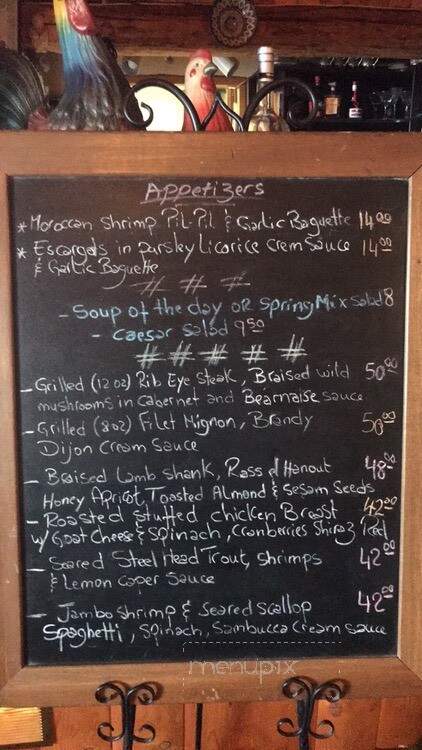 Appetizers
* Moroccan Shrimp Pil-Pil & Garlic Baguette 14.00
* Escargots in Parsley Licorice Crem Sauce 14.00
& Garlic Baguette
# # #
- Soup of the day OR Spring Mix Salad 8
- Caesar Salad 9.50
# # # # #
- Grilled (12 oz) Rib Eye Steak, Braised wild 50.00
mushrooms in Cabernet and Bearnaise sauce
- Grilled (8oz) Filet Mignon, Brandy 50.00
Dijon Cream Sauce
- Braised Lamb Shank, Rass el Hanout 48.00
Honey Apricot, Toasted Almond & Sesam Seeds
- Roasted Stuffed Chicken Breast 42.00
w/ Goat Cheese & Spinach, Cranberries Shiraz Red
- Seared Steel Head Trout, Shrimps 42.00
& Lemon Caper Sauce
- Jambo Shrimp & Seared Scallop 42.00
Spaghetti, Spinach, Sambucca Cream Sauce
menupix